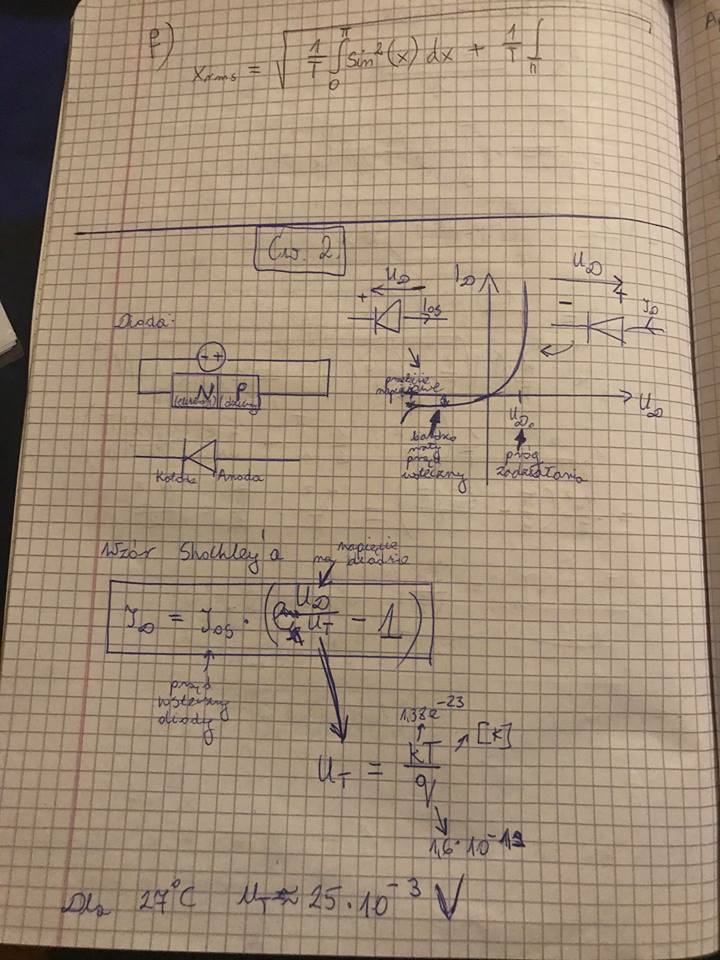 f)
Xrms = √ 1/T ∫₀^π sin²(x) dx + 1/T ∫_π
Ćw. 2.
Dioda:
- +
N P
(elektrony) (dziury)
Katoda Anoda
U_D
+
I_DS
I_D
U_D
- +
I_D
przebicie
napięciowe
U_D
U_D₀
bardzo
mały
prąd
wsteczny
próg
zadziałania
Wzór Shockley'a
napięcie
na diodzie
I_D = I_DS · (e^(U_D/U_T) - 1)
prąd
wsteczny
diody
1,38e^-23
U_T = kT/q
[K]
1,6·10^-19
Dla 27°C U_T ≈ 25·10^-3 V